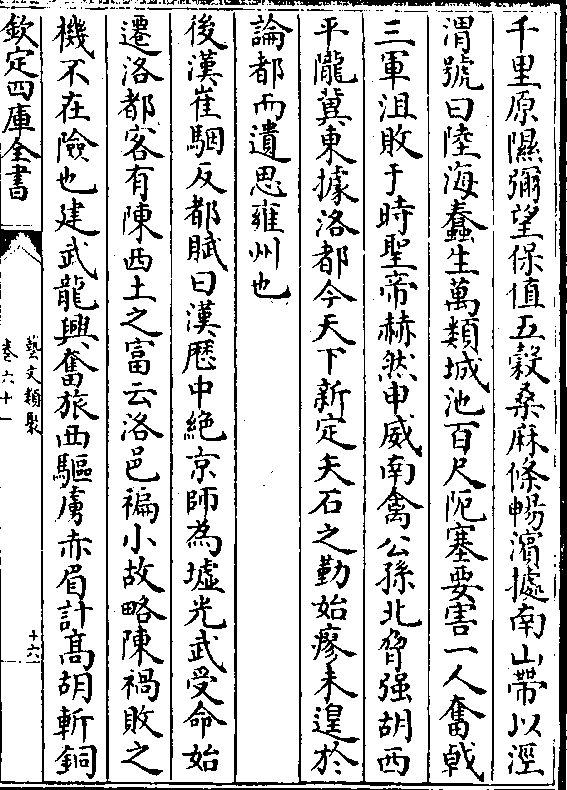 千里原隰彌望保值五穀桑麻條暢濵據南山帶以涇
渭號曰陸海蠢生萬類城池百尺阨塞要害一人奮㦸
三軍沮敗于時聖帝赫然申威南禽公孫北脅强胡西
平隴冀東據洛都今天下新定矢石之勤始瘳未遑於
論都而遺思雍州也
後漢崔駰反都賦曰漢厯中絶京師為墟光武受命始
遷洛都客有陳西土之富云洛邑褊小故略陳禍敗之
機不在險也建武龍興奮旅西驅虜赤眉討高胡斬銅
欽定四庫全書
藝文類聚
卷六十一
十六